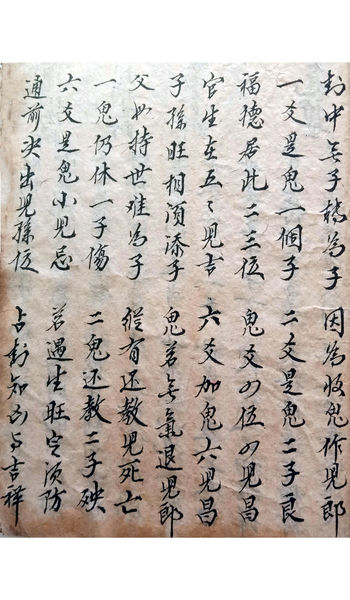 卦中無子為子 因為收鬼作兒郎
一爻是鬼一個子 二爻是鬼二子良
福德居此二三位 鬼爻四位四兒昌
官生在五々兒吉 六爻加鬼六兒昌
子孫旺相須添子 鬼若無氣退兒郎
父母持世难為子 縱有还教兒死亡
一鬼仍休一子傷 二鬼还教二子殃
六爻是鬼小兒忌 若遇生旺定須防
通前决出兒孫位 占卦知凶与吉祥